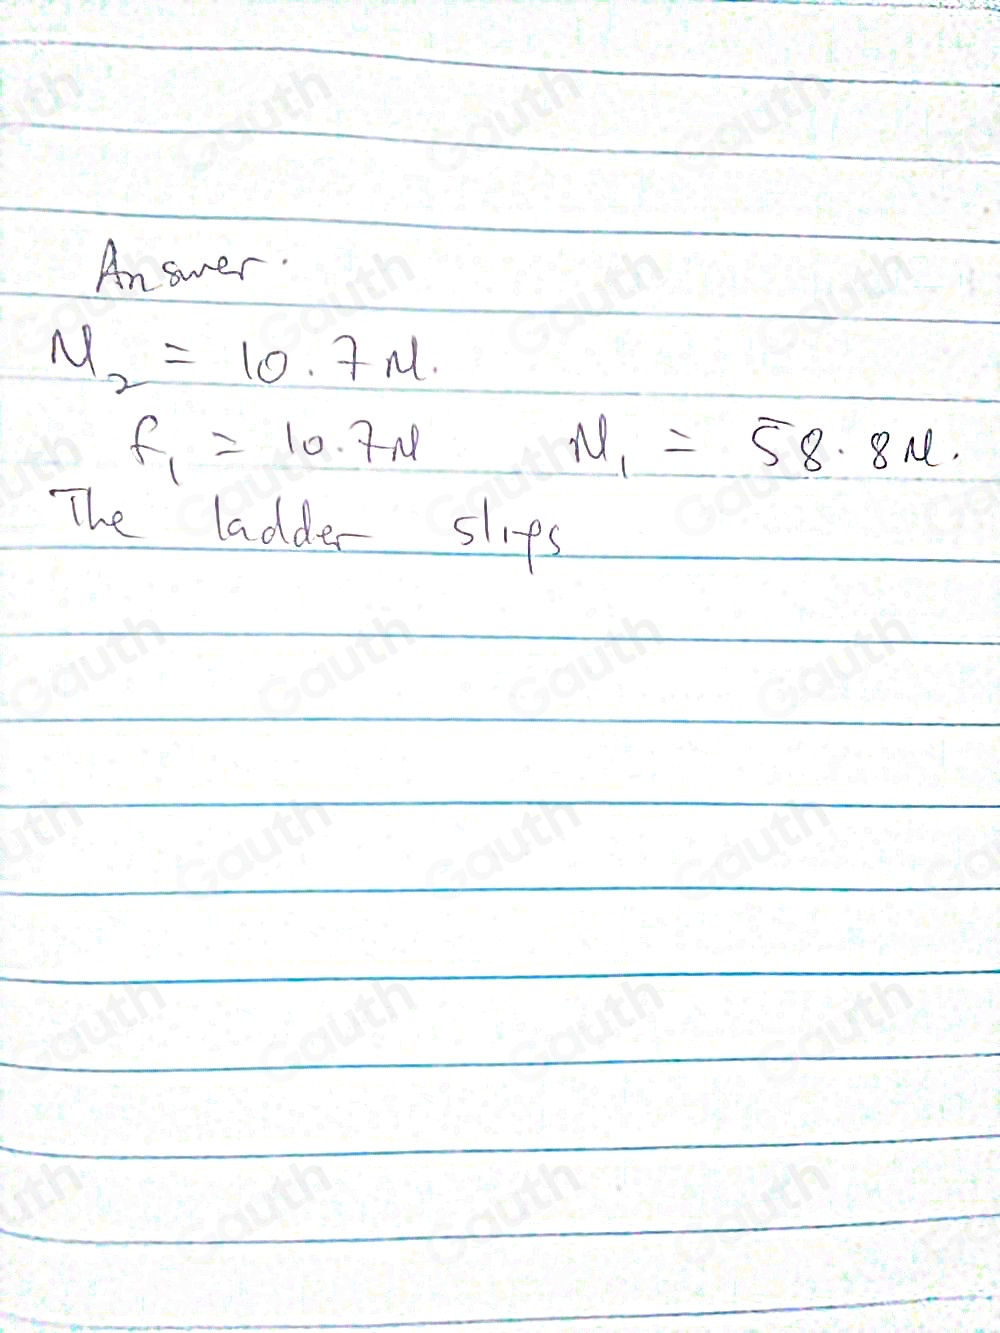 Answer.
N₂ = 10.7N.
f₁ = 10.7N N₁ = 58.8N.
The ladder slips